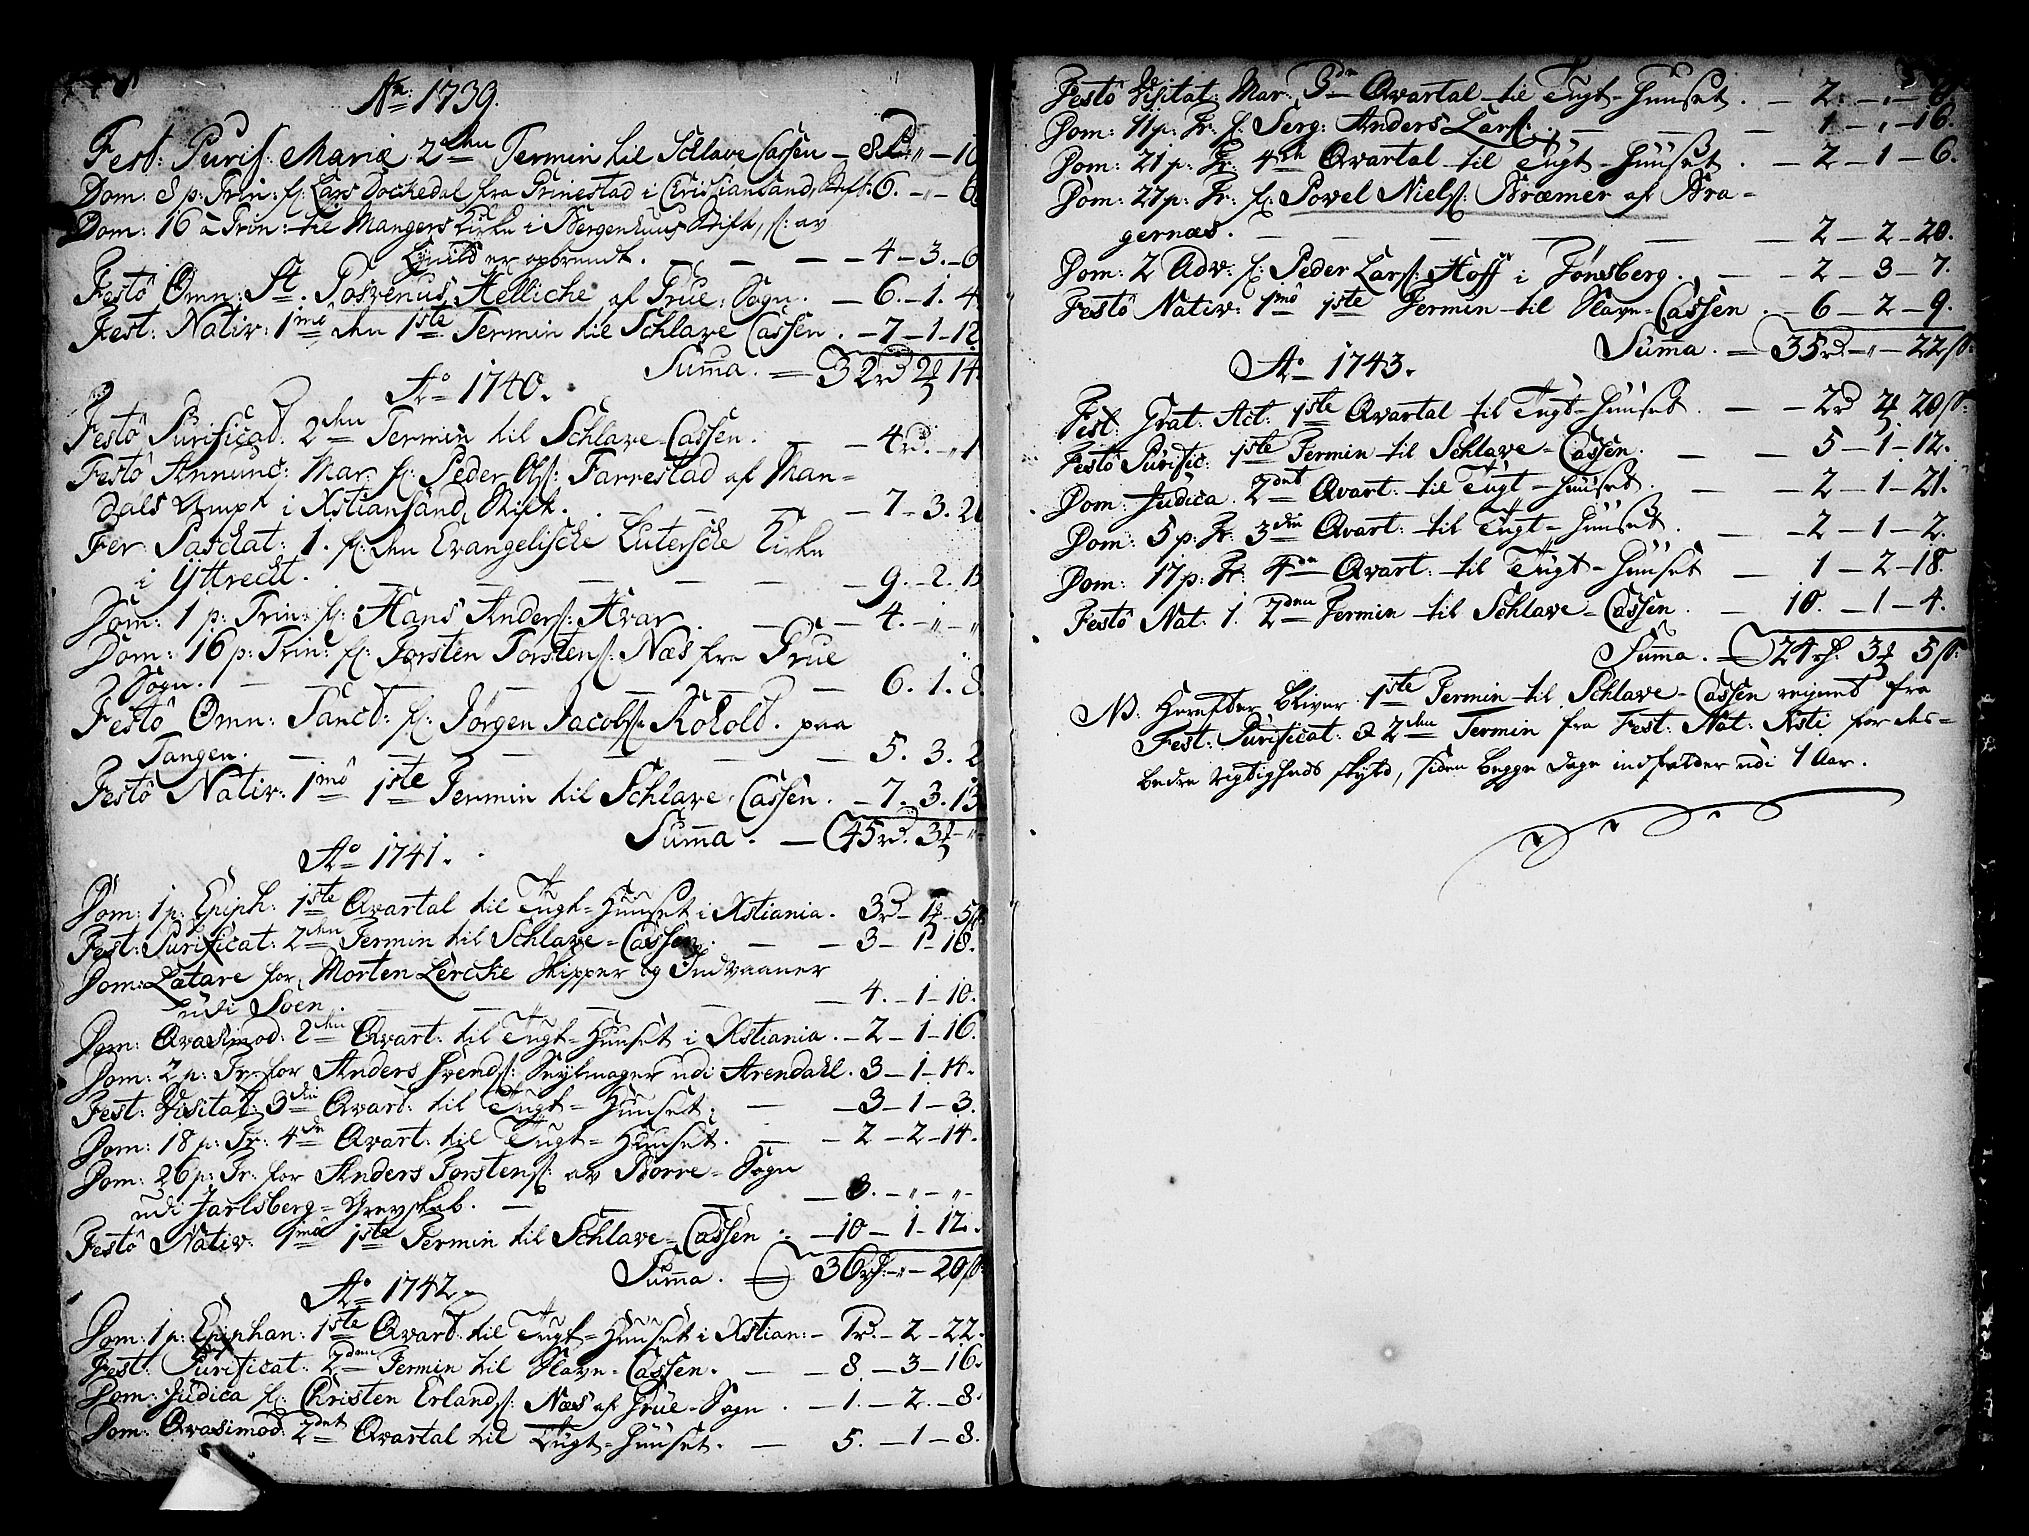 Aō: 1739.
Fest: Purif: Mariæ 2den Termin til Schlave Cassen — 8rd „ — 10
Dom: 8 p: Trin: f: Lars Dockedal fra Prinestad i Christiansand Stift 6. — „ — 6
Dom: 16 à Trin: til Mangers Kirke i Bergenhuus Stift, s: av
Lynild er opbrendt. — — — 4 — 3. — 6
Festô Omn: St. Poszenus Helliche af True: Sogn. — 6. — 1. 4
Fest: Nativ: 1mô den 1ste Termin til Schlave Cassen. — 7 — 1 — 12
Summa. = 32rd 2 14
Aō 1740.
Festô Purificat. 2den Termin til Schlave-Cassen. — 4rd. „ 1
Festô Annunc: Mar: f: Peder Ols: Farrestad af Man=
dals Ampt i Xstiansand Stift. — — — 7 — 3. 20
Fer: Paschat: 1. f: den Evangelische Luterske Kirke
i Yttrecht. — — — 9. — 2. 13
Dom: 1 p: Trin: f: Hans Anders: Hvar. — — 4. — „ — „
Dom: 16 p: Trin: f: Torsten Torstens: Næs fra True
Sogn. — — — 6. 1. 8.
Festô Omn: Sanct: f: Jørgen Jacobs: Kobold. paa
Tangen. — — — 5. 3. 2
Festô Nativ: 1mô 1ste Termin til Schlave-Cassen. — 7. 3. 13
Summa. — 45rd. 3 — „
Aō 1741.
Dom: 1 p: Epiph: 1ste Qvartal til Tugt=Huuset i Xstiania. 3rd — 1 — 5s
Fest: Purificat: 2den Termin til Schlave=Cassen. — — 3 — 1 — 18.
Dom: Lætare for Morten Lercke Skipper og Indvaaner
udi Soen. — — — 4. — 1 — 10.
Dom: Qvasimod: 2den Qvart: til Tugt=Huuset i Xstiania. — 2 — 1 — 16
Dom: 2 p: Tr: for Anders Svends: Seylmager udi Arendahl. 3 — 1 — 14.
Fest: Visitat: 3die Qvart. til Tugt=Huuset. — — 3 — 1 — 3.
Dom: 18 p: Tr: 4de Qvart: til Tugt=Huuset. — — 2 — 2 — 14.
Dom: 26 p: Tr: for Anders Torstens: av Borre=Sogn
udi Jarlsberg=Grevskab. — — — 3. — „ — „ —
Festô Nativ: 1mô 1ste Termin til Schlave=Cassen — 10 — 1 — 12.
Summa. = 36rd: „ — 20s
Aō 1742.
Dom: 1 p: Epiphan: 1ste Qvart: til Tugt=Huuset i Xstian: — 1rd. — 2 — 22.
Fest: Purificat: 2den Termin til Slave-Cassen. — — 8. — 3 — 16.
Dom: Judica f: Christen Erlands: Næs af True-Sogn. — 1. — 2. — 8.
Dom: Qvasimod: 2det Qvartal til Tugt=Huuset. — 5. — 1 — 8.
Festô Visitat: Mar: 3de Qvartal til Tugt=Huuset. — 2. — „ — 8.
Dom: 11 p: Tr: f: Serg: Anders Lars: — — — 1 — „ — 16.
Dom: 21 p: Tr: 4de Qvartal til Tugt=Huuset. — 2 — 1 — 6.
Dom: 27 p: Tr: f: Povel Niels: Bræmer af Bra=
gernæs. — — — — — 2 — 2 — 20.
Dom: 2 Adv: f: Peder Lars: Hoff i Tønsberg. — 2 — 3 — 7.
Festô Nativ: 1mô 1ste Termin til Slave=Cassen. — 6 — 2 — 9.
Summa. = 35rd. — „ — 22s:
Aō 1743.
Fest: Grat. Act: 1ste Qvartal til Tugt=Huuset. — 2rd 2 20s:
Festô Purific: 1ste Termin til Schlave-Cassen. — — 5 — 1 — 12.
Dom: Judica. 2det Qvart: til Tugt=Huuset. — 2 — 1 — 21.
Dom: 5 p: Tr: 3die Qvart: til Tugt=Huuset. — 2 — 1 — 2.
Dom: 17 p: Tr: 4de Qvart: til Tugt=Huuset — 1 — 2 — 18.
Festô Nat: 1. 2den Termin til Schlave=Cassen. — 10. — 1 — 4.
Summa. = 24rd. 3 5s:
NB. Herefter bliver 1ste Termin til Schlave-Cassen reignet fra
Fest: Purificat: & 2den Termin fra Fest: Nat: Xsti for des=
bedre rigtigheds skyld, siden begge dage indfalder udi 1 Aar.